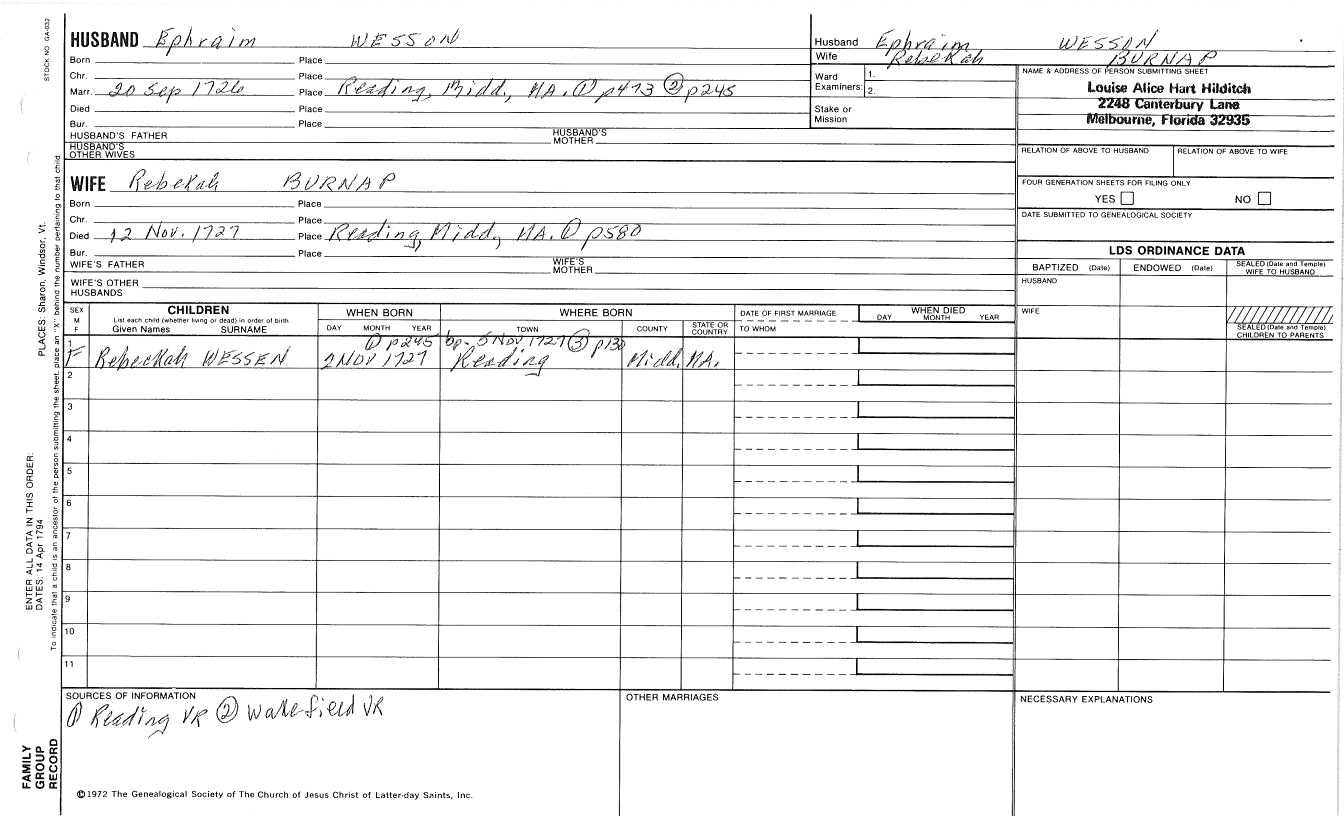 STOCK NO GA-032
PLACES: Sharon, Windsor, Vt.
ENTER ALL DATA IN THIS ORDER:
DATES: 14 Apr 1794
To indicate that a child is an ancestor of the person submitting the sheet, place an "X" behind the number pertaining to that child
FAMILY
GROUP
RECORD
HUSBAND Ephraim WESSON
Born Place
Chr. Place
Marr. 20 Sep 1726 Place Reading, Midd., MA. ① p473 ② p245
Died Place
Bur. Place
HUSBAND'S FATHER HUSBAND'S MOTHER
HUSBAND'S OTHER WIVES
WIFE Rebekah BURNAP
Born Place
Chr. Place
Died 12 Nov. 1727 Place Reading, Midd., MA. ① p580
Bur. Place
WIFE'S FATHER WIFE'S MOTHER
WIFE'S OTHER HUSBANDS
Husband Ephraim WESSON
Wife Rebekah BURNAP
Ward Examiners: 1.
2.
Stake or Mission
NAME & ADDRESS OF PERSON SUBMITTING SHEET
Louise Alice Hart Hilditch
2248 Canterbury Lane
Melbourne, Florida 32935
RELATION OF ABOVE TO HUSBAND RELATION OF ABOVE TO WIFE
FOUR GENERATION SHEETS FOR FILING ONLY
YES NO
DATE SUBMITTED TO GENEALOGICAL SOCIETY
LDS ORDINANCE DATA
BAPTIZED (Date) ENDOWED (Date) SEALED (Date and Temple) WIFE TO HUSBAND
HUSBAND
WIFE
SEALED (Date and Temple) CHILDREN TO PARENTS
SEX M F
CHILDREN
List each child (whether living or dead) in order of birth
Given Names SURNAME
WHEN BORN
DAY MONTH YEAR
WHERE BORN
TOWN COUNTY STATE OR COUNTRY
DATE OF FIRST MARRIAGE
TO WHOM
WHEN DIED
DAY MONTH YEAR
① p245 bp. 5 Nov 1727 ③ p130
1 F Rebeckah WESSEN 2 NOV 1727 Reading Midd. MA.
2
3
4
5
6
7
8
9
10
11
SOURCES OF INFORMATION
① Reading VR ② Wakefield VR
OTHER MARRIAGES
NECESSARY EXPLANATIONS
©1972 The Genealogical Society of The Church of Jesus Christ of Latter-day Saints, Inc.